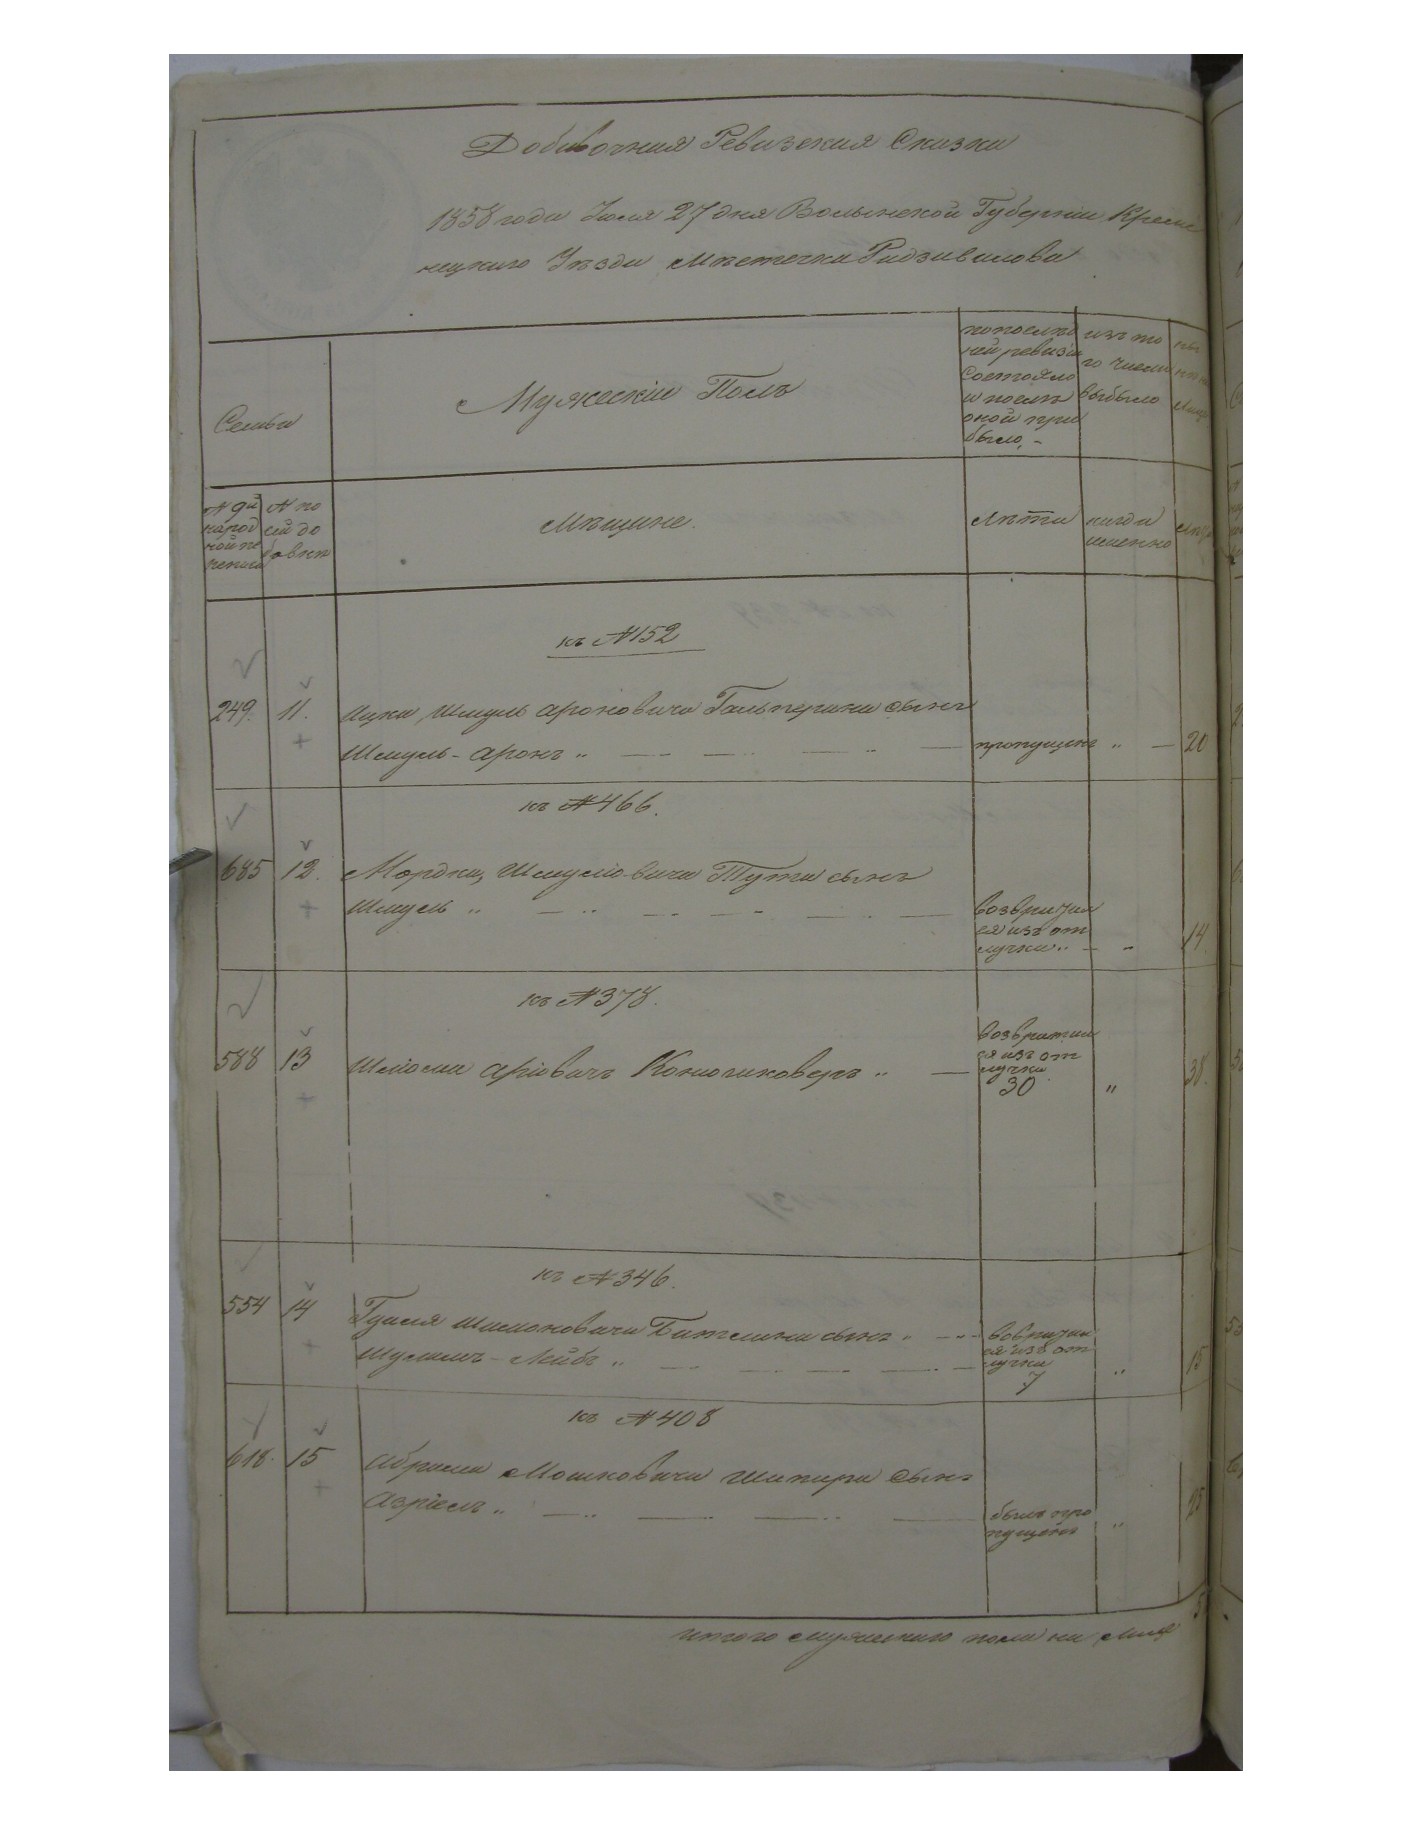 Добавочная Ревизская Сказка
1858 года Июля 27 дня Волынской Губернии Креме
нецкого Уѣзда Мѣстечка Радзивилова
Семьи
Мужескій Полъ
по послѣд
ней ревизіи
состояло
и послѣ
оной при
было
изъ то
го числа
выбыло
Мѣщане.
№ по
сей до
Лѣта
когда
именно
къ №152
249. 11. Ицка Шмуль Ароновича Гальперина сынъ
Шмуль-Аронъ „ пропущенъ „ 20
къ №466.
685 12. Мордка Шмуліовича Тута сынъ
Шмуль „ возвратил
ся изъ от
лучки „ 14.
къ №378.
588 13 Шліома Аріовичъ „ возвратил
ся изъ от
лучки
30 „ 38.
къ №346.
554 14 Гуиля Шимоновича Бителина сынъ
Шулимъ-Лейбъ „ возвратил
ся изъ от
лучки
7 „ 15
къ №408
618. 15 Абрама Мошковича Шапира сынъ
Азріель „ былъ про
пущенъ „ 25
итого мужескаго пола на лицо 5